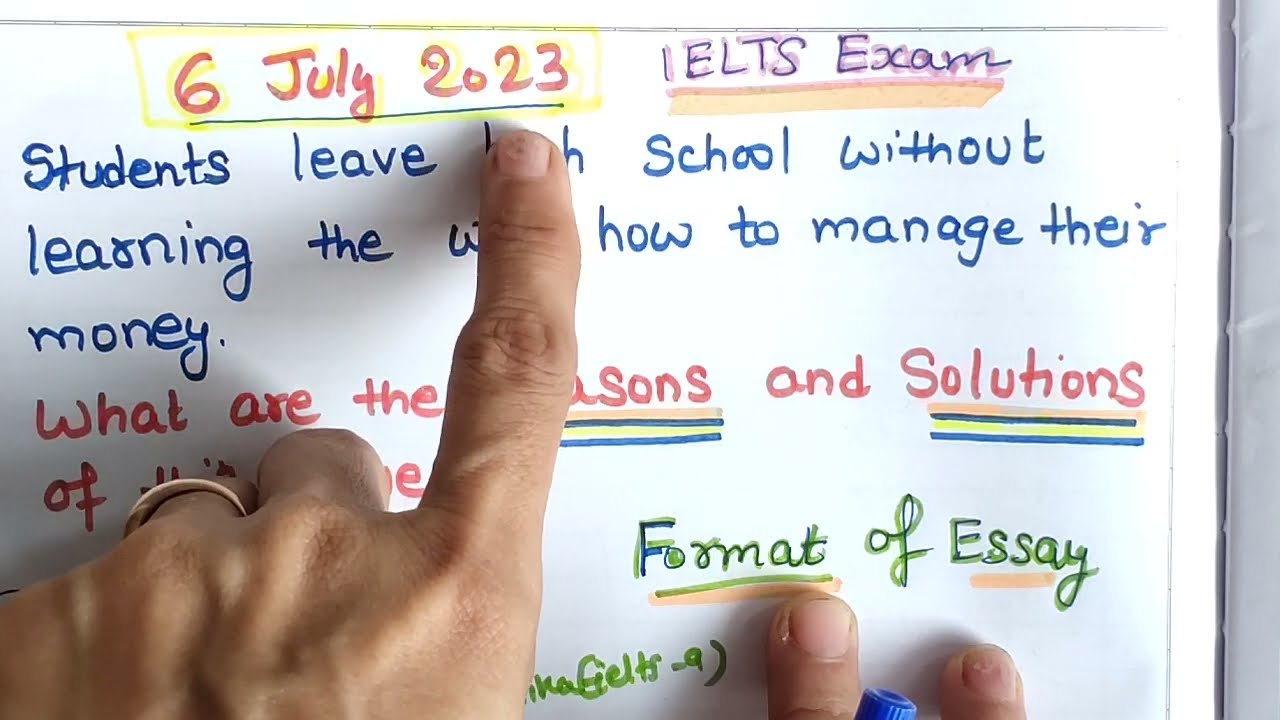 6 July 2023 IELTS Exam
Students leave school without
learning the how to manage their
money.
What are the and Solutions
of
Format of Essay